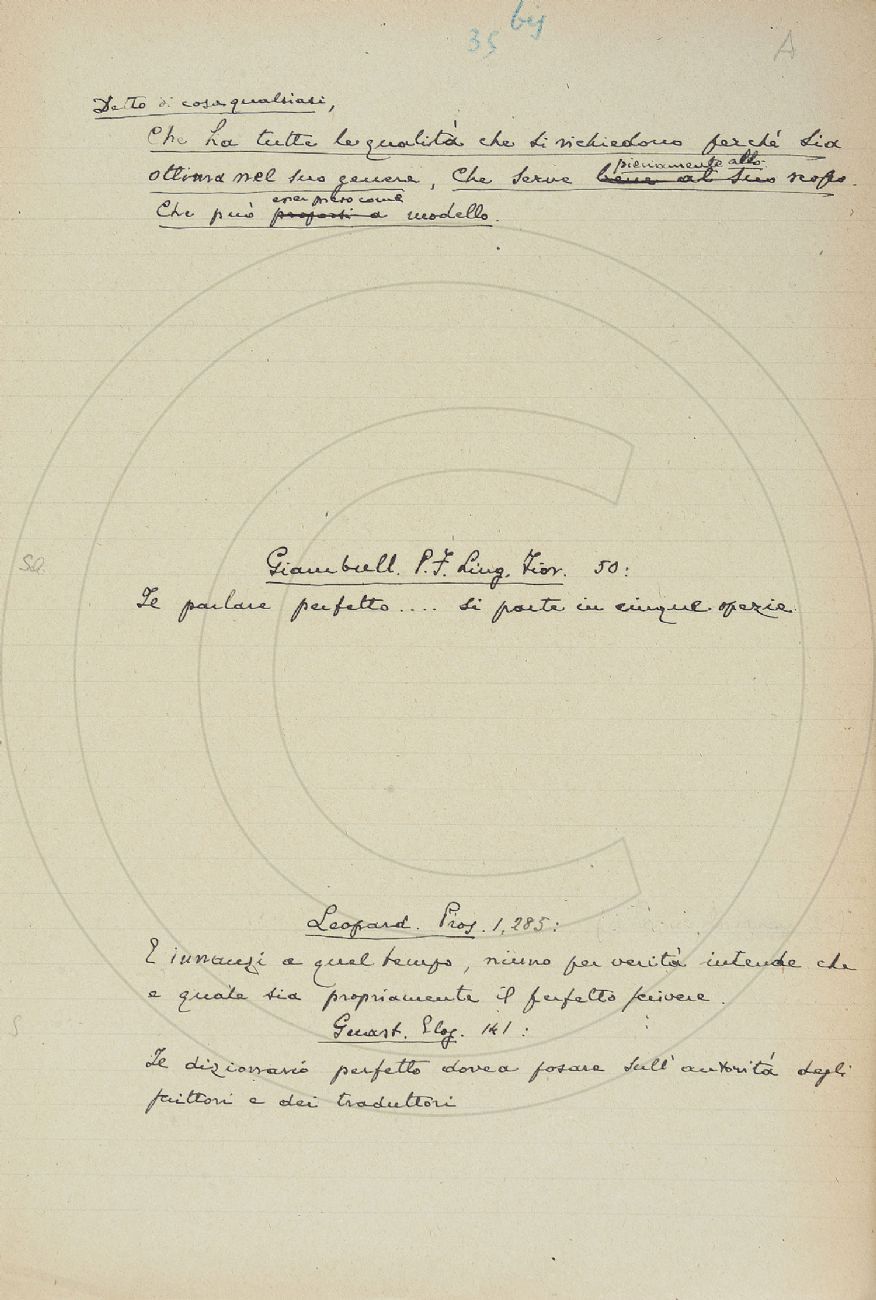 35 bis
A
Detto di cosa qualsiasi,
Che ha tutte le qualità che si richiedono perché sia
pienamente allo
ottima nel suo genere, Che serve bene al suo scopo.
esser preso come
Che può proporsi a modello.
Giambull. P. F. Ling. Fior. 50:
Il parlare perfetto.... si parte in cinque spezie
Leopard. Pros. 1, 285:
E innanzi a quel tempo, niuno per verità intende che
e quale sia propriamente il perfetto scrivere.
Guast. Elog. 141:
Il dizionario perfetto dovea posare sull'autorità degli
scrittori e dei traduttori